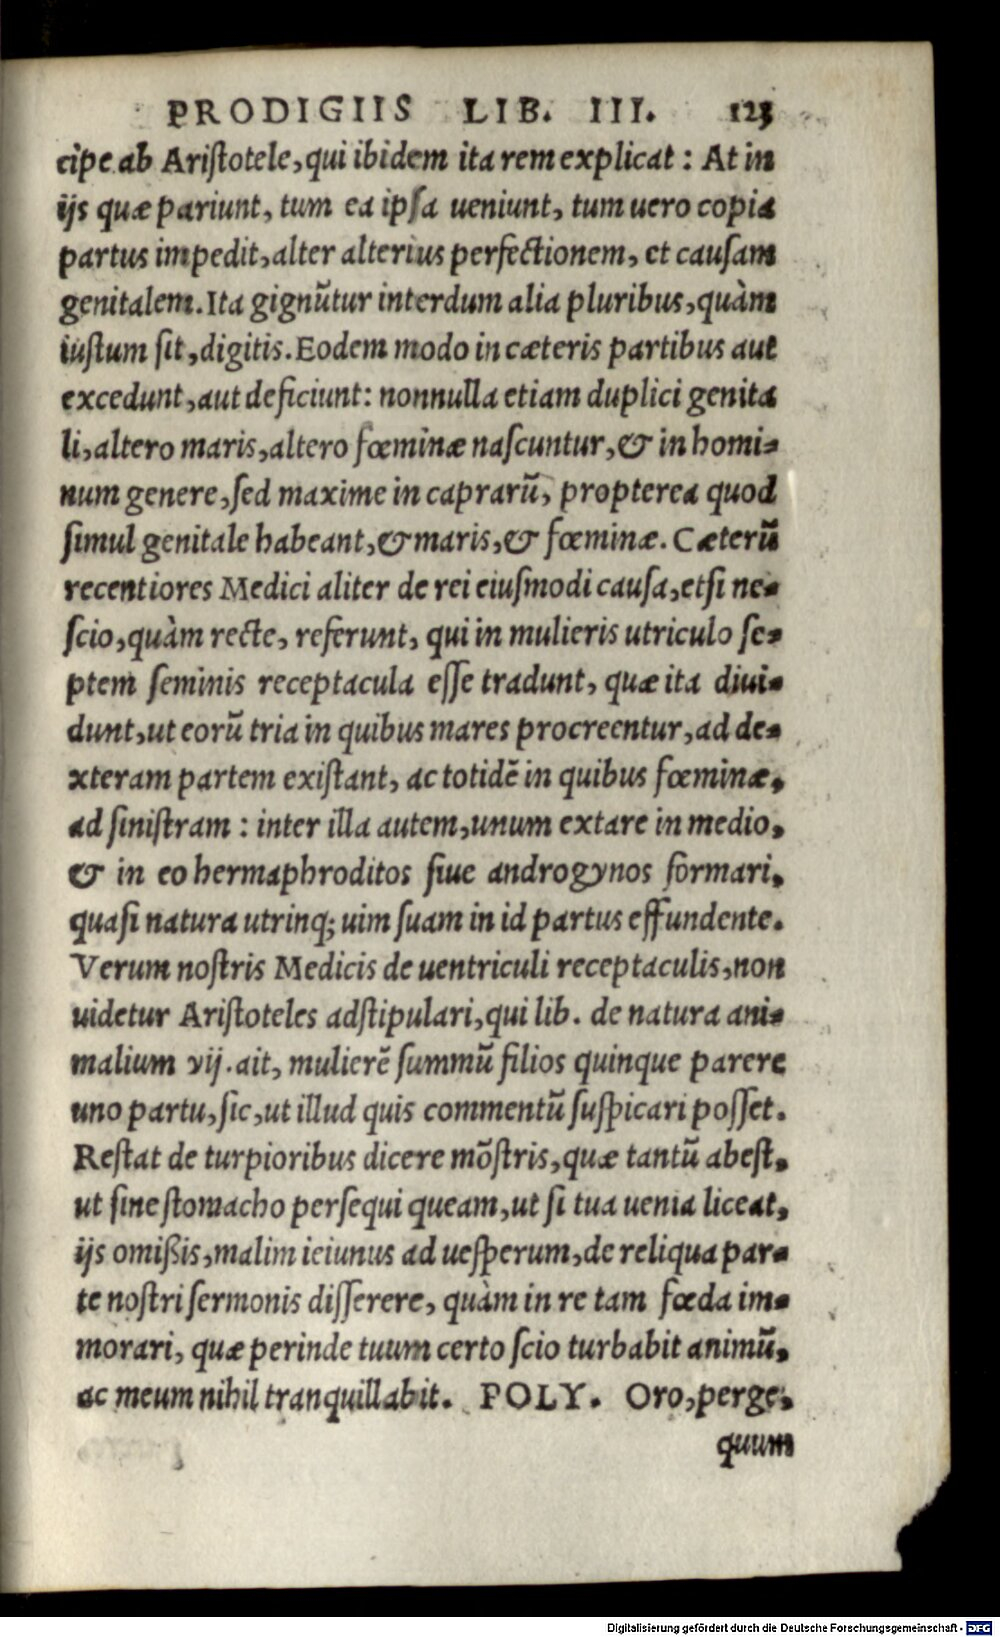 PRODIGIIS LIB. III. 123
cipe ab Ariſtotele, qui ibidem ita rem explicat : At in
ijs quæ pariunt, tum ea ipſa ueniunt, tum uero copia
partus impedit, alter alterius perfectionem, et cauſam
genitalem. Ita gignũtur interdum alia pluribus, quàm
iuſtum ſit, digitis. Eodem modo in cæteris partibus aut
excedunt, aut deficiunt: nonnulla etiam duplici genita
li, altero maris, altero fœminæ naſcuntur, & in homi-
num genere, ſed maxime in caprarũ, propterea quod
ſimul genitale habeant, & maris, & fœminæ. Cæterũ
recentiores Medici aliter de rei eiuſmodi cauſa, etſi ne-
ſcio, quàm recte, referunt, qui in mulieris utriculo ſe-
ptem ſeminis receptacula eſſe tradunt, quæ ita diui-
dunt, ut eorũ tria in quibus mares procreentur, ad de-
xteram partem exiſtant, ac totidẽ in quibus fœminæ,
ad ſiniſtram : inter illa autem, unum extare in medio,
& in eo hermaphroditos ſiue androgynos formari,
quaſi natura utrinq; uim ſuam in id partus effundente.
Verum noſtris Medicis de uentriculi receptaculis, non
uidetur Ariſtoteles adſtipulari, qui lib. de natura ani-
malium vij. ait, mulierẽ ſummũ filios quinque parere
uno partu, ſic, ut illud quis commentũ ſuſpicari poſſet.
Reſtat de turpioribus dicere mõſtris, quæ tantũ abeſt,
ut ſine ſtomacho perſequi queam, ut ſi tua uenia liceat,
ijs omißis, malim ieiunus ad ueſperum, de reliqua par-
te noſtri ſermonis diſſerere, quàm in re tam fœda im-
morari, quæ perinde tuum certo ſcio turbabit animũ,
ac meum nihil tranquillabit. POLY. Oro, perge,
quum
Digitalisierung gefördert durch die Deutsche Forschungsgemeinschaft - DFG